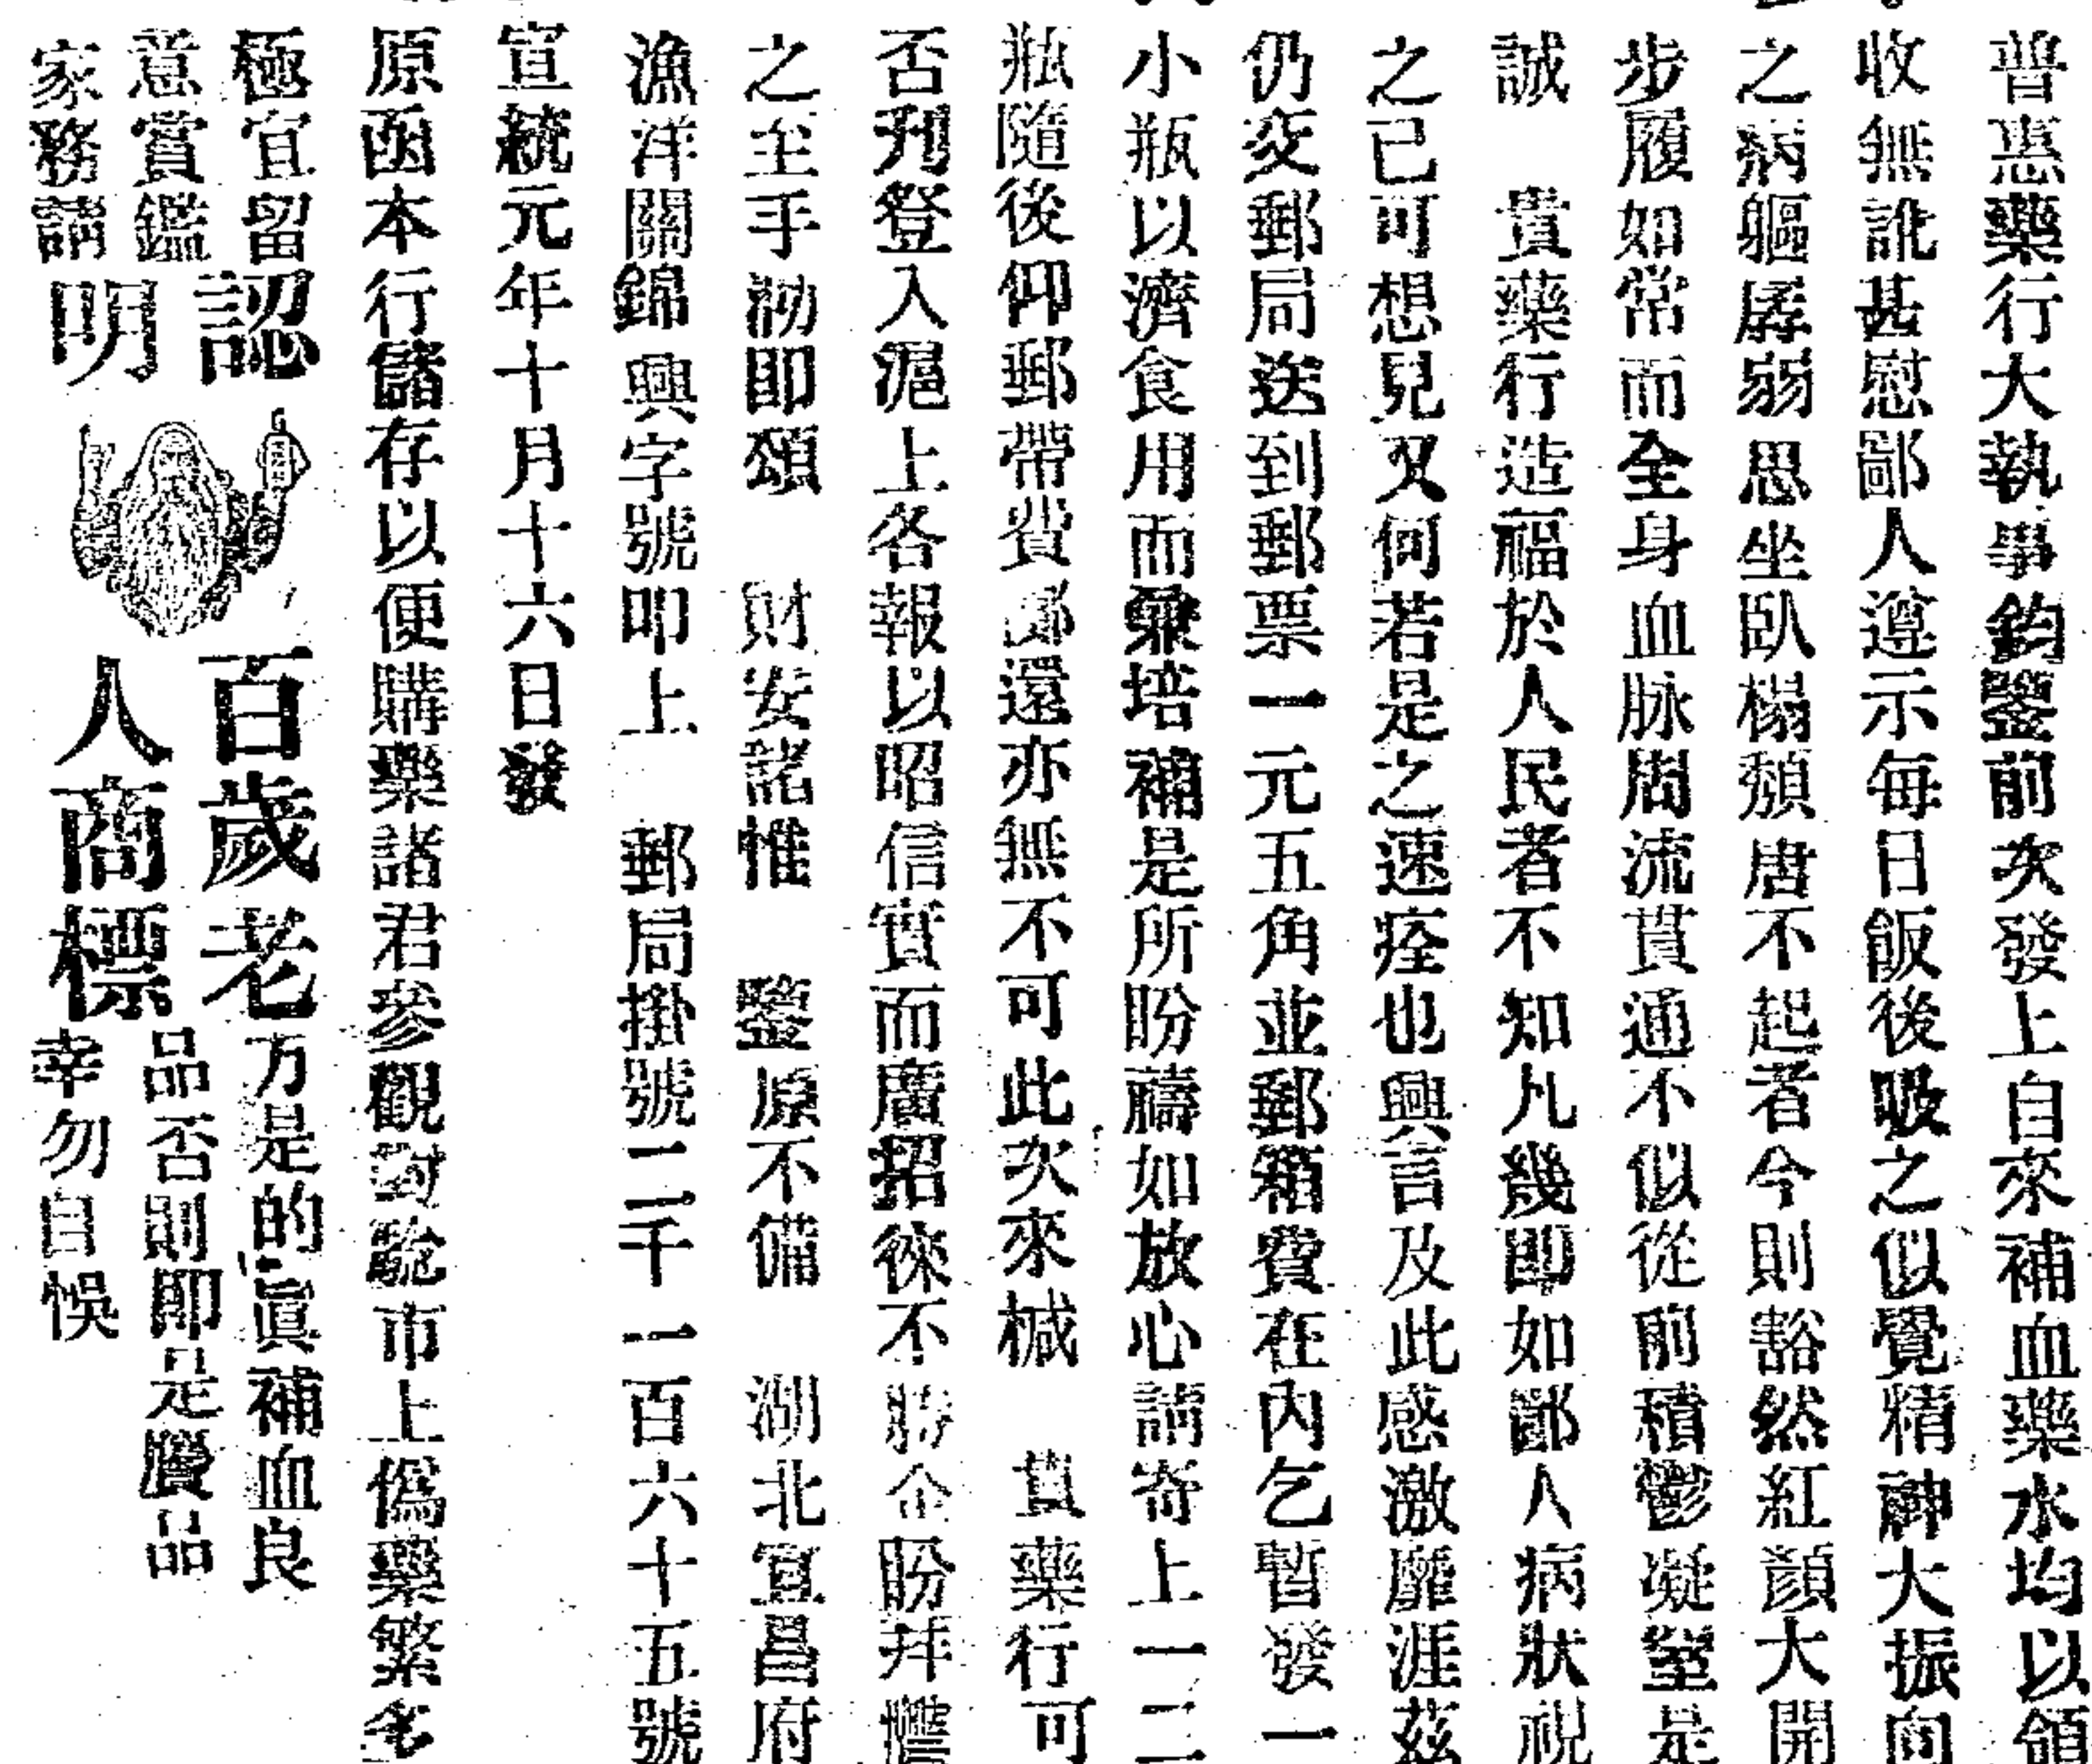 普惠藥行大執事鈞鑒前次發上自來補血藥水均以領
收無訛甚慰鄙人遵示每日飯後吸之似覺精神大振向
之病軀孱弱思坐臥榻頹唐不起者今則豁然紅顏大開
步履如常而全身血脉周流貫通不似從前積鬱凝窒是
誠　貴藥行造福於人民者不知凡幾即如鄙人病狀視
之已可想見又何若是之速痊也興言及此感激靡涯茲
仍交郵局送到郵票一元五角並郵箱費在內乞暫發一
小瓶以濟食用而兼培補是所盼禱如放心請寄上一二
瓶隨後仰郵帶費郵還亦無不可此次來械　貴藥行可
否刋登入滬上各報以昭信實而廣招徠不勝企盼拜禱
之至手泐即頌　財安諸惟　鑒原不備　湖北宜昌府
漁洋關錦興字號叩上　郵局掛號二千一百六十五號
宣統元年十月十六日發
原函本行儲存以便購藥諸君參觀對驗市上僞藥繁多
極宜留
意賞鑑
家務請
認明
百歲老人商標
方是的眞補血良
品否則即是贋品
幸勿自悞